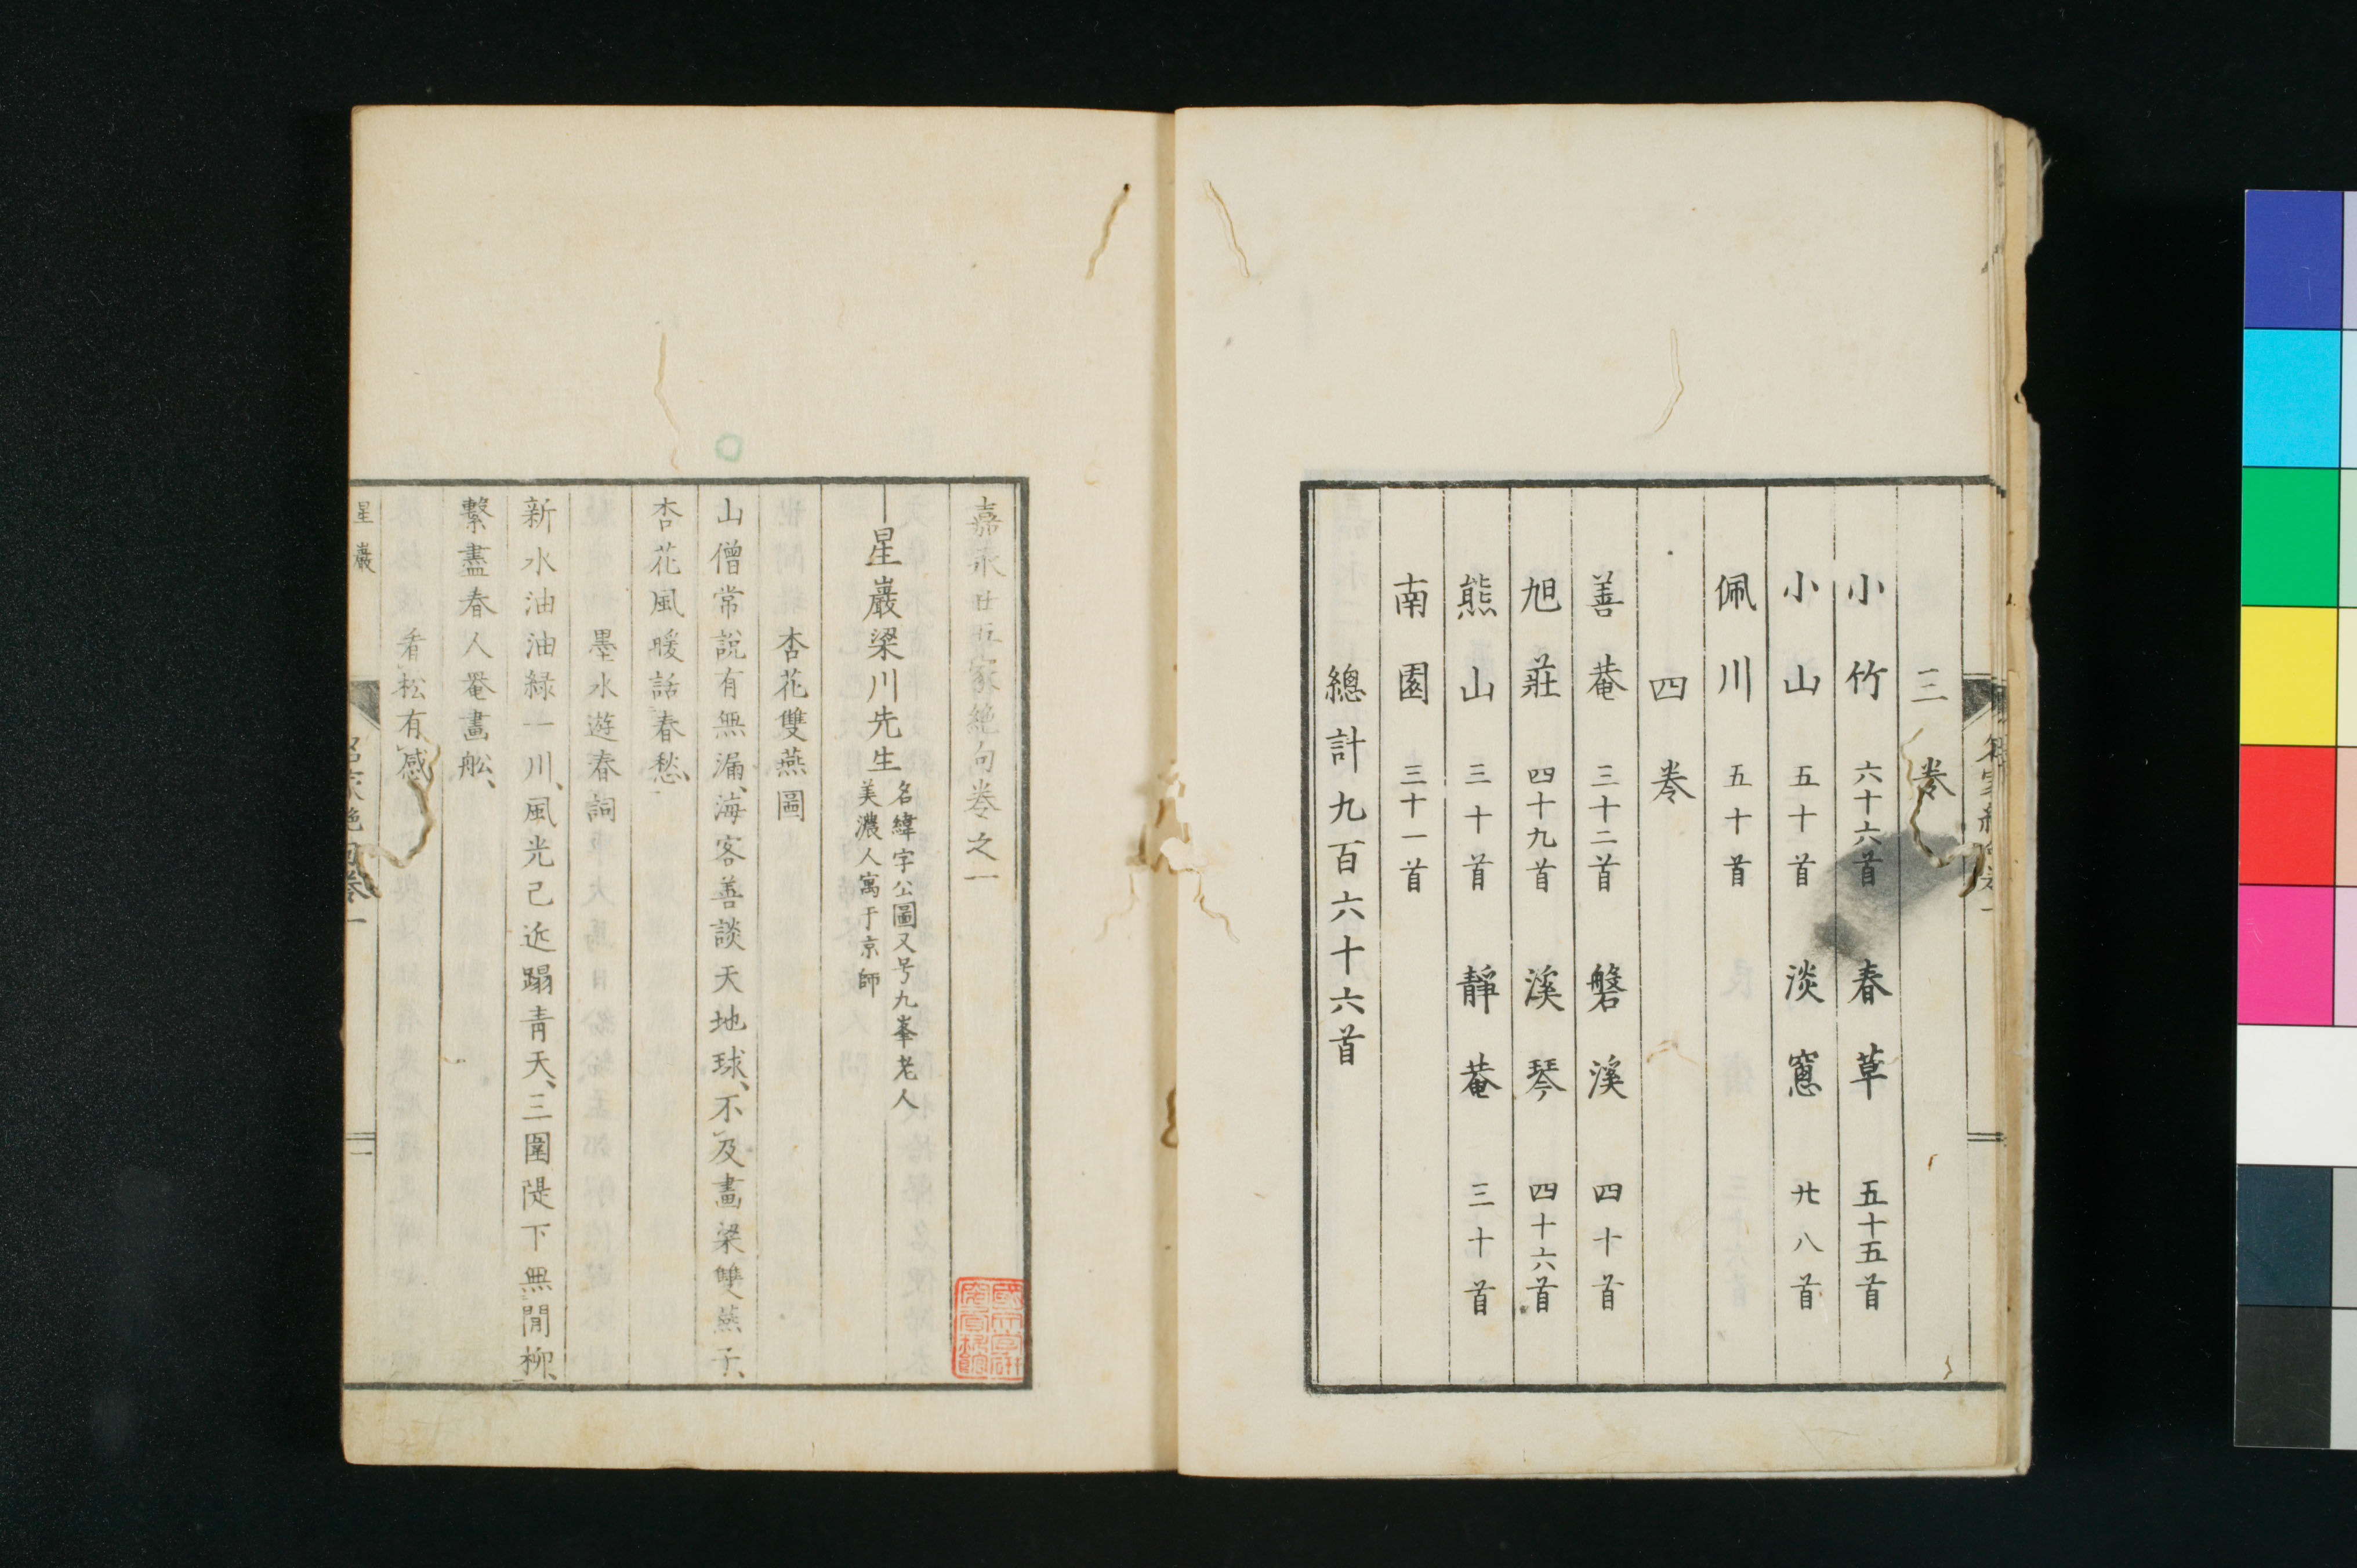 三卷
小竹 六十六首 春草 五十五首
小山 五十首 淡窻 廿八首
佩川 五十首
四卷
善菴 三十二首 磐溪 四十首
旭莊 四十九首 溪琴 四十六首
熊山 三十首 靜菴 三十首
南園 三十一首
總計九百六十六首
嘉永廿五家絶句卷之一
星巖梁川先生
名緯字公圖又号九峯老人
美濃人寓于京師
杏花雙燕圖
山僧常說有無漏、海客善談天地球、不及畫梁雙燕子、
杏花風暖話春愁、
墨水遊春詞
新水油油綠一川、風光已近蹋青天、三圍隄下無閒柳、
繫盡春人罨畫舩、
看松有感
星巖
名家絶句卷一
一